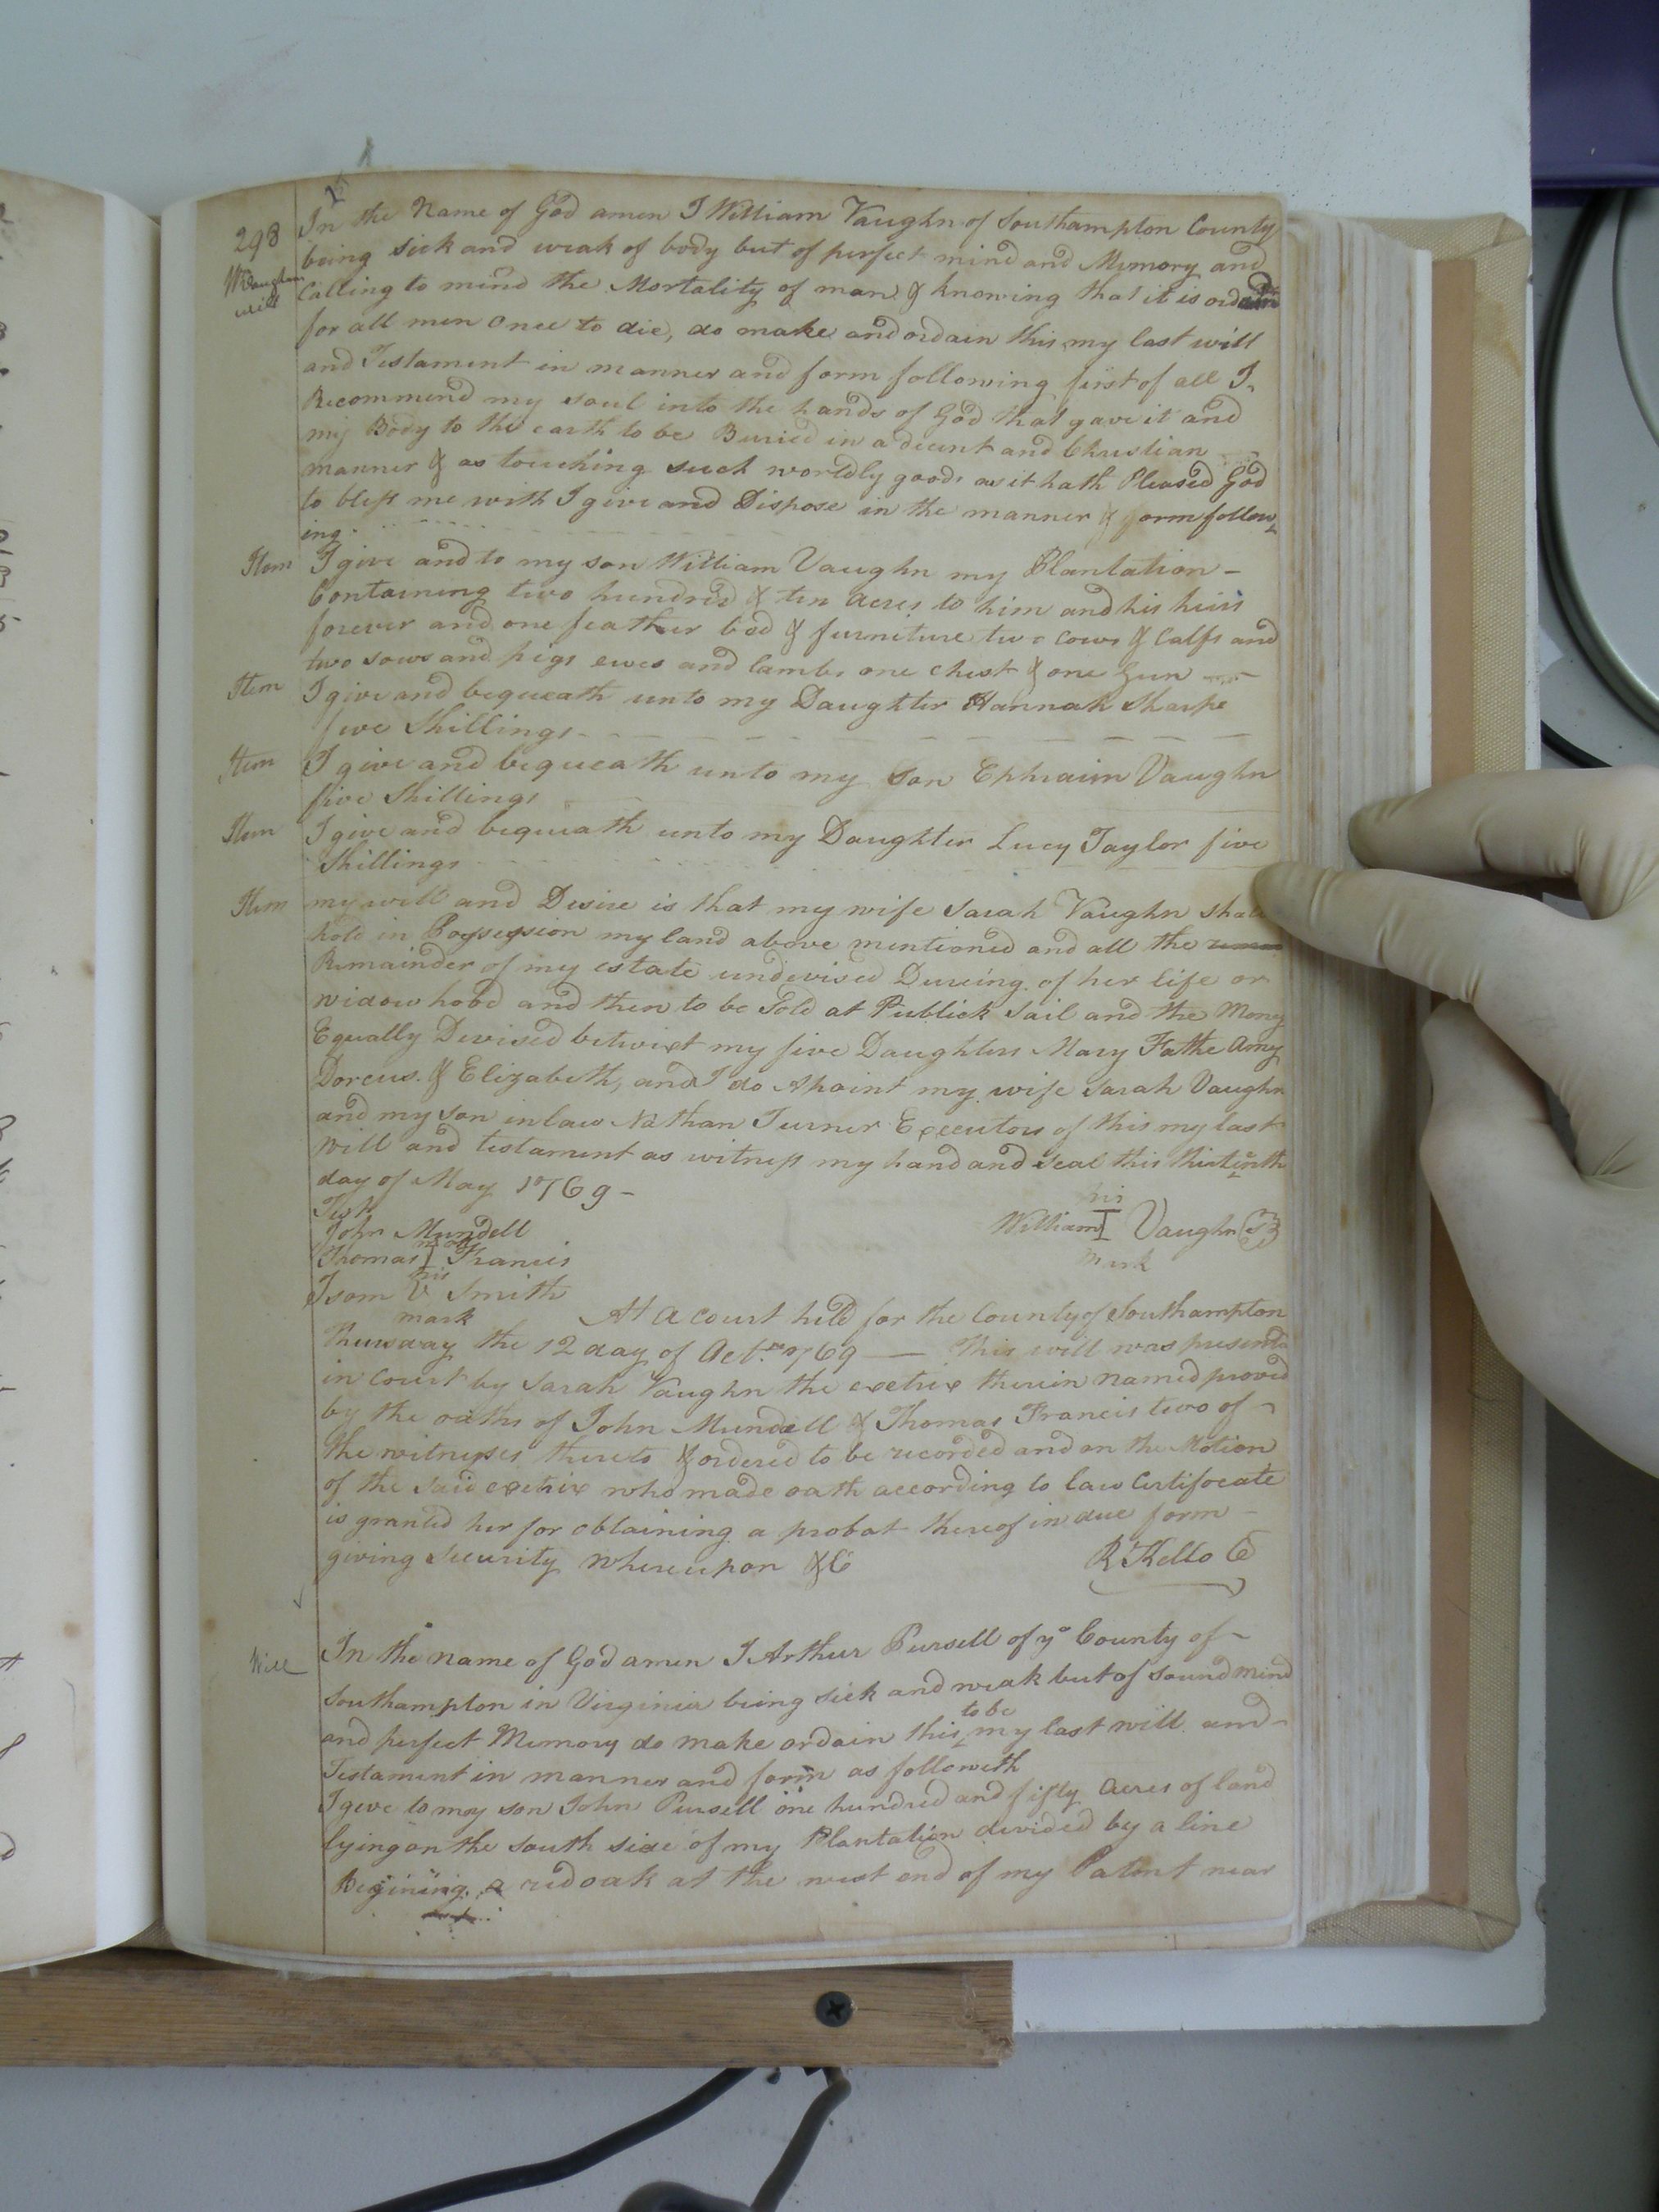 298
Wm Vaughn
will
In the Name of God amen I William Vaughn of Southampton County
being sick and weak of body but of perfect mind and Memory and
Calling to mind the Mortality of man & knowing that it is ordain
for all men Once to die, do make and ordain this my last will
and Testament in manner and form following first of all I
Recommend my soul into the hands of God that gave it and
my Body to the earth to be Buried in a decent and Christian
manner & as touching such worldly goods as it hath Pleased God
to bless me with I give and Dispose in the manner & form follow
ing
Item I give and to my son William Vaughn my Plantation -
Containing two hundred & ten acres to him and his heirs
forever and one feather bed & furniture two cows & Calfs and
two sows and pigs ewes and lambs one chest & one Gun
Item I give and bequeath unto my Daughter Hannah Sharpe
five Shillings
Item I give and bequeath unto my Son Ephraim Vaughn
five Shillings
Item I give and bequeath unto my Daughter Lucy Taylor five
Shillings
Item my will and Desire is that my wife Sarah Vaughn shall
hold in Possession my land above mentioned and all the
Remainder of my estate undevised Dureing of her life or
widowhood and then to be Sold at Publick Sail and the Mony
Equally Devised betwixt my five Daughters Mary Fathe Amy
Dorcus. & Elizabeth, and I do Apoint my wife Sarah Vaughn
and my son in law Nathan Turner Executors of this my last
will and testament as witness my hand and Seal this thirteenth
day of May 1769 -
Test
John Mundell
his
William I Vaughn
mark
mark
Thomas I Francis
his
Isom V Smith
mark
At a court held for the County of Southampton
Thursday the 12 day of Oct. 1769 — This will was presented
in Court by Sarah Vaughn the exetrix therein named proved
by the oaths of John Mundell & Thomas Francis two of
the witnesses thereto & ordered to be recorded and on the Motion
of the said exetrix who made oath according to law Certifocate
is granted her for obtaining a probat thereof in due form -
giving Security whereupon &C
R Kello C
Will
In the name of God amen I Arthur Pursell of ye County of -
Southampton in Virginia being sick and weak but of sound mind
to be
and perfect Memory do make ordain this my last will and -
Testament in manner and form as followeth
I give to my son John Pursell one hundred and fifty Acres of land
lying on the south side of my Plantation devided by a line
Begining a red oak at the west end of my Patent near